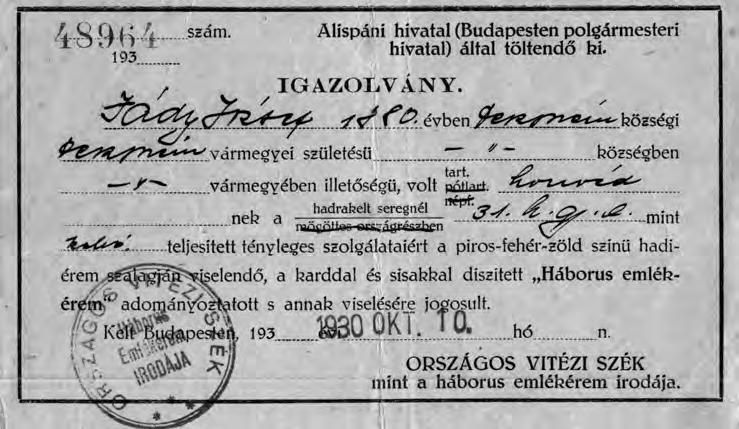 48964 szám.
193
Alispáni hivatal (Budapesten polgármesteri
hivatal) által töltendő ki.
IGAZOLVÁNY.
József 1880. évben községi
vármegyei születésü — " — községben
— " — vármegyében illetőségü, volt tart. póttart. népf. honvéd
nek a hadrakelt seregnél mögöttes országrészben 31. h. gy. e. mint
teljesitett tényleges szolgálataiért a piros-fehér-zöld szinü hadi-
érem szalagján viselendő, a karddal és sisakkal diszitett „Háborus emlék-
érem" adományoztatott s annak viselésére jogosult.
Kelt Budapesten, 193 évi 1930 OKT. 10. hó n.
ORSZÁGOS VITÉZI SZÉK
mint a háborus emlékérem irodája.
ORSZÁGOS VITÉZI SZÉK
Háborús
Emlékérem
IRODÁJA